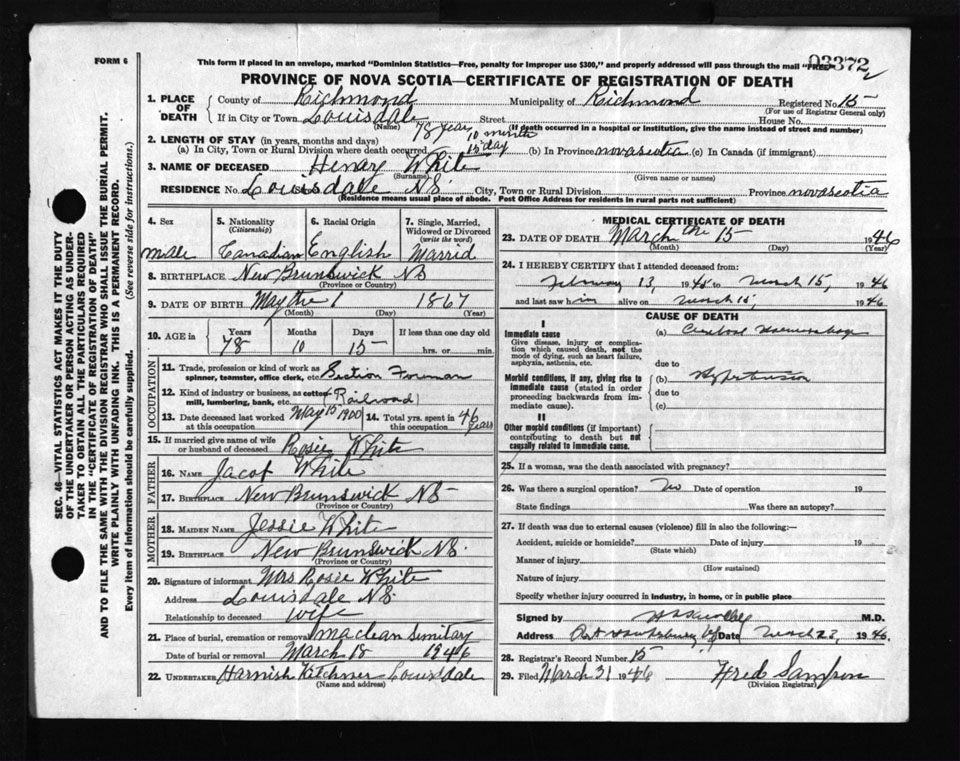 FORM 6
This form if placed in an envelope, marked "Dominion Statistics—Free, penalty for improper use $300," and properly addressed will pass through the mail "FREE"
03372
PROVINCE OF NOVA SCOTIA—CERTIFICATE OF REGISTRATION OF DEATH
1. PLACE OF DEATH
County of Richmond Municipality of Richmond Registered No. 15
(For use of Registrar General only)
If in City or Town Louisdale Street House No.
(Name) (If death occurred in a hospital or institution, give the name instead of street and number)
2. LENGTH OF STAY (in years, months and days) 78 year 10 month
(a) In City, Town or Rural Division where death occurred 15 day (b) In Province novascotia (c) In Canada (if immigrant)
3. NAME OF DECEASED Henry White
(Surname) (Given name or names)
RESIDENCE No. Louisdale NS. City, Town or Rural Division Province novascotia
(Residence means usual place of abode. Post Office Address for residents in rural parts not sufficient)
4. Sex male
5. Nationality (Citizenship) Canadian
6. Racial Origin English
7. Single, Married, Widowed or Divorced (write the word) Marrid
8. BIRTHPLACE New Brunswick NB
(Province or Country)
9. DATE OF BIRTH May the 1 1867
(Month) (Day) (Year)
10. AGE in Years 78 Months 10 Days 15 If less than one day old hrs. or min.
OCCUPATION
11. Trade, profession or kind of work as spinner, teamster, office clerk, etc. Section Forman
12. Kind of industry or business, as cotton mill, lumbering, bank, etc. Railroad
13. Date deceased last worked at this occupation May 15 1900
14. Total yrs. spent in this occupation 46 years
15. If married give name of wife or husband of deceased Rosie White
FATHER
16. NAME Jacob White
17. BIRTHPLACE New Brunswick NB
(Province or Country)
MOTHER
18. MAIDEN NAME Jessie White
19. BIRTHPLACE New Brunswick NB.
(Province or Country)
20. Signature of informant Mrs Rosie White
Address Louisdale NS.
Relationship to deceased wife
21. Place of burial, cremation or removal maclean simitary
Date of burial or removal March 18 1946
22. UNDERTAKER Harnish Kitchner Louisdale
(Name and address)
MEDICAL CERTIFICATE OF DEATH
23. DATE OF DEATH March the 15 1946
(Month) (Day) (Year)
24. I HEREBY CERTIFY that I attended deceased from:
February 13, 1945 to March 15, 1946
and last saw him alive on March 15, 1946
CAUSE OF DEATH
I
Immediate cause (a) Cerebral Haemorrhage
Give disease, injury or complication which caused death, not the mode of dying, such as heart failure, asphyxia, asthenia, etc.
due to
Morbid conditions, if any, giving rise to immediate cause (stated in order proceeding backwards from immediate cause). (b) Hypertension
due to
(c)
II
Other morbid conditions (if important) contributing to death but not causally related to immediate cause.
25. If a woman, was the death associated with pregnancy?
26. Was there a surgical operation? No Date of operation 19
State findings Was there an autopsy?
27. If death was due to external causes (violence) fill in also the following:—
Accident, suicide or homicide? Date of injury 19
(State which)
Manner of injury
(How sustained)
Nature of injury
Specify whether injury occurred in industry, in home, or in public place
Signed by M.D.
Address Port Hawkesbury Date March 23, 1946.
28. Registrar's Record Number 15
29. Filed March 31 1946 Fred Sampson
(Division Registrar)
SEC. 46—VITAL STATISTICS ACT MAKES IT THE DUTY
OF THE UNDERTAKER OR PERSON ACTING AS UNDER-
TAKER TO OBTAIN ALL THE PARTICULARS REQUIRED
IN THE "CERTIFICATE OF REGISTRATION OF DEATH"
AND TO FILE THE SAME WITH THE DIVISION REGISTRAR WHO SHALL ISSUE THE BURIAL PERMIT.
WRITE PLAINLY WITH UNFADING INK. THIS IS A PERMANENT RECORD.
Every item of information should be carefully supplied. (See reverse side for instructions.)